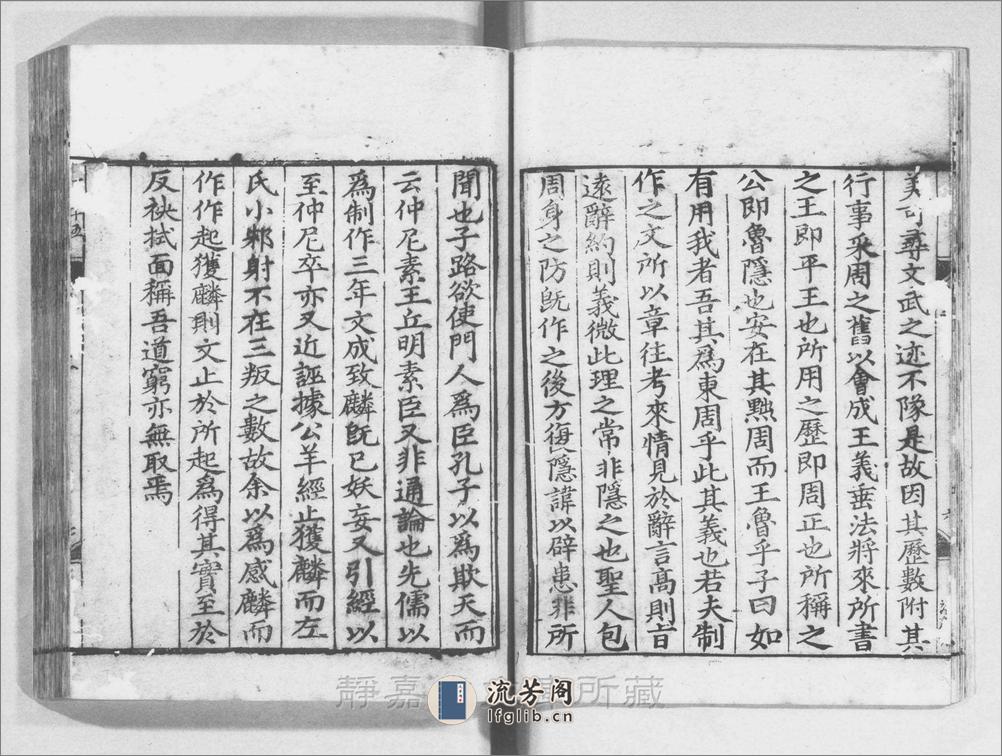 美可尋文武之迹不隊是故因其歷數附其
行事采周之舊以會成王義垂法將來所書
之王即平王也所用之歷即周正也所稱之
公即魯隱也安在其黜周而王魯乎子曰如
有用我者吾其為東周乎此其義也若夫制
作之文所以章往考來情見於辭言高則旨
遠辭約則義微此理之常非隱之也聖人包
周身之防既作之後方復隱諱以辟患非所
聞也子路欲使門人為臣孔子以為欺天而
云仲尼素王丘明素臣又非通論也先儒以
為制作三年文成致麟既已妖妄又引經以
至仲尼卒亦又近誣據公羊經止獲麟而左
氏小邾射不在三叛之數故余以為感麟而
作作起獲麟則文止於所起為得其實至於
反袂拭面稱吾道窮亦無取焉
靜嘉
所藏
流芳阁
lfglib.cn